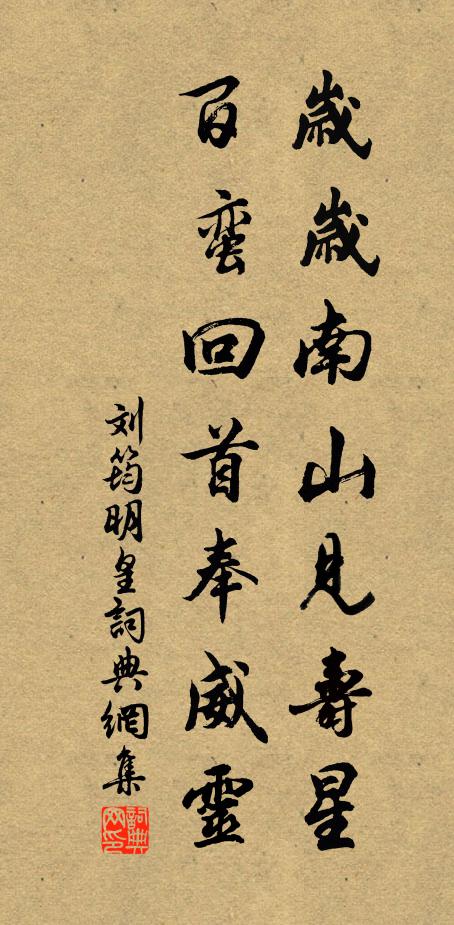 歲歲南山見壽星
百蛮回首奉威靈
刘筠明皇詞典網集
詞典網印